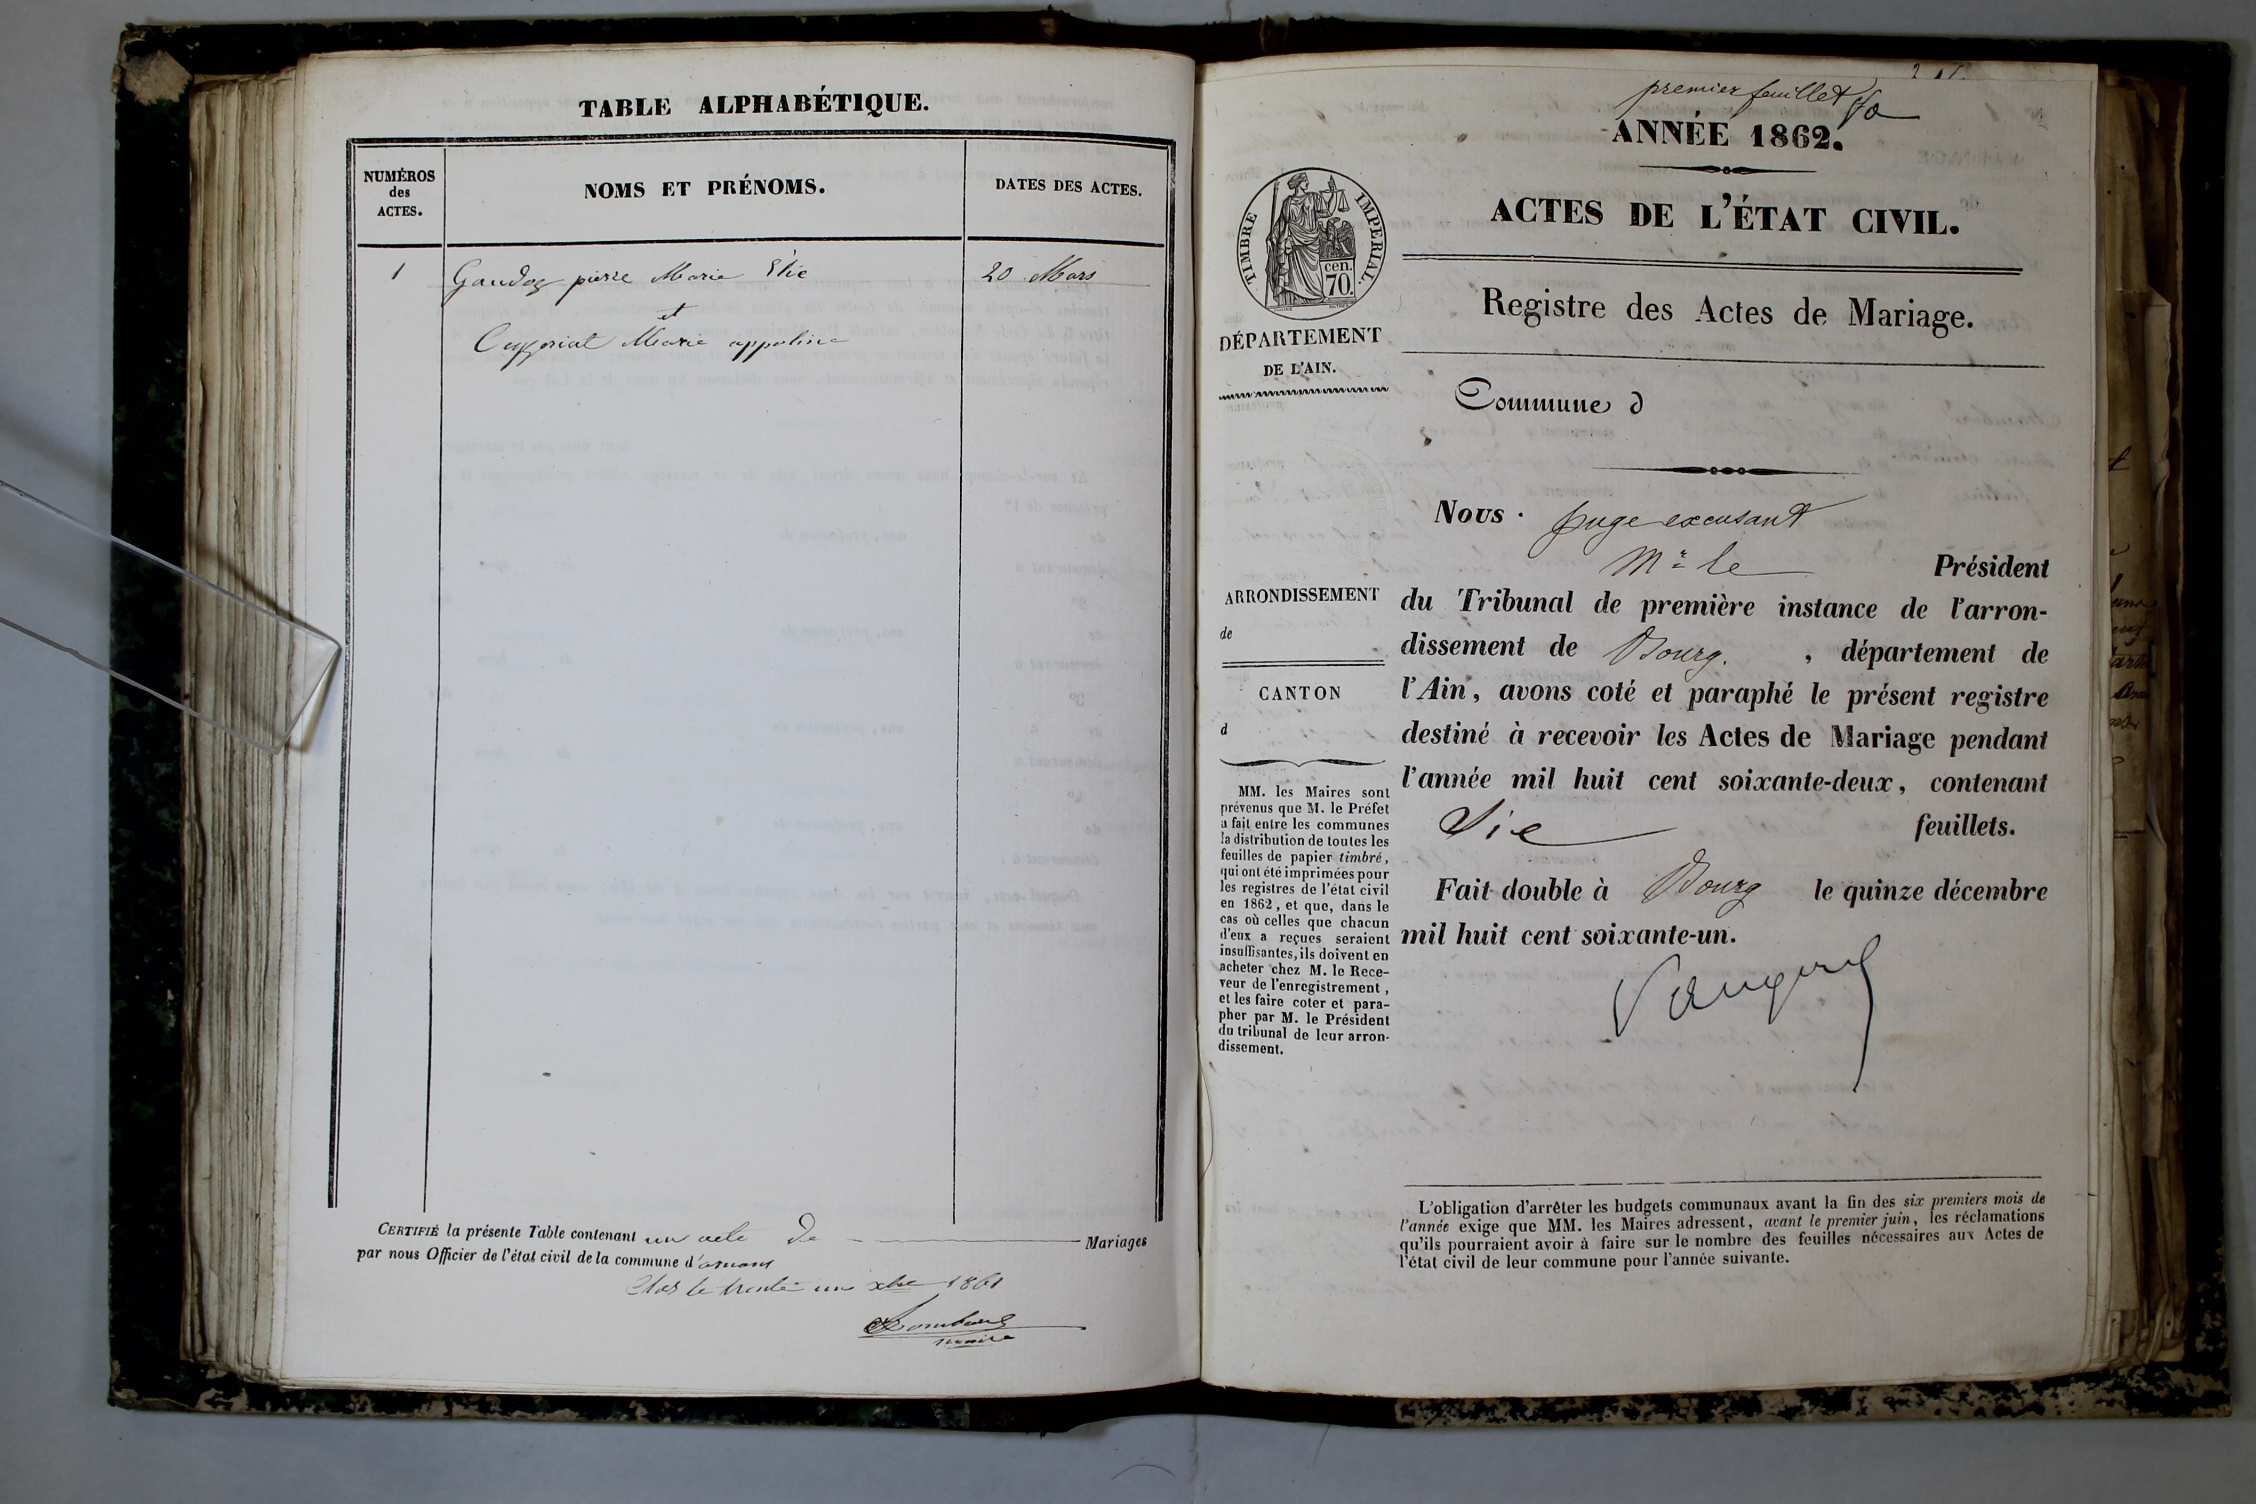 TABLE ALPHABÉTIQUE.
NUMÉROS
des
ACTES.
NOMS ET PRÉNOMS.
DATES DES ACTES.
1 Gaudoz pierre Marie Elie 20 Mars
et
Cuzoriat Marie appoline
CERTIFIÉ la présente Table contenant un acte de Mariages
par nous Officier de l'état civil de la commune d'arnans
Clos le trente un xbre 1861
maire
premier feuillet
ANNÉE 1862.
ACTES DE L'ÉTAT CIVIL.
TIMBRE IMPERIAL.
cen.
70.
DÉPARTEMENT
DE L'AIN.
Registre des Actes de Mariage.
Commune d
Nous juge excusant
Mr le Président
du Tribunal de première instance de l'arron-
dissement de Bourg. , département de
l'Ain, avons coté et paraphé le présent registre
destiné à recevoir les Actes de Mariage pendant
l'année mil huit cent soixante-deux, contenant
Six feuillets.
Fait double à Bourg le quinze décembre
mil huit cent soixante-un.
ARRONDISSEMENT
de
CANTON
d
MM. les Maires sont
prévenus que M. le Préfet
a fait entre les communes
la distribution de toutes les
feuilles de papier timbré,
qui ont été imprimées pour
les registres de l'état civil
en 1862, et que, dans le
cas où celles que chacun
d'eux a reçues seraient
insuffisantes, ils doivent en
acheter chez M. le Rece-
veur de l'enregistrement,
et les faire coter et para-
pher par M. le Président
du tribunal de leur arron-
dissement.
L'obligation d'arrêter les budgets communaux avant la fin des six premiers mois de
l'année exige que MM. les Maires adressent, avant le premier juin, les réclamations
qu'ils pourraient avoir à faire sur le nombre des feuilles nécessaires aux Actes de
l'état civil de leur commune pour l'année suivante.